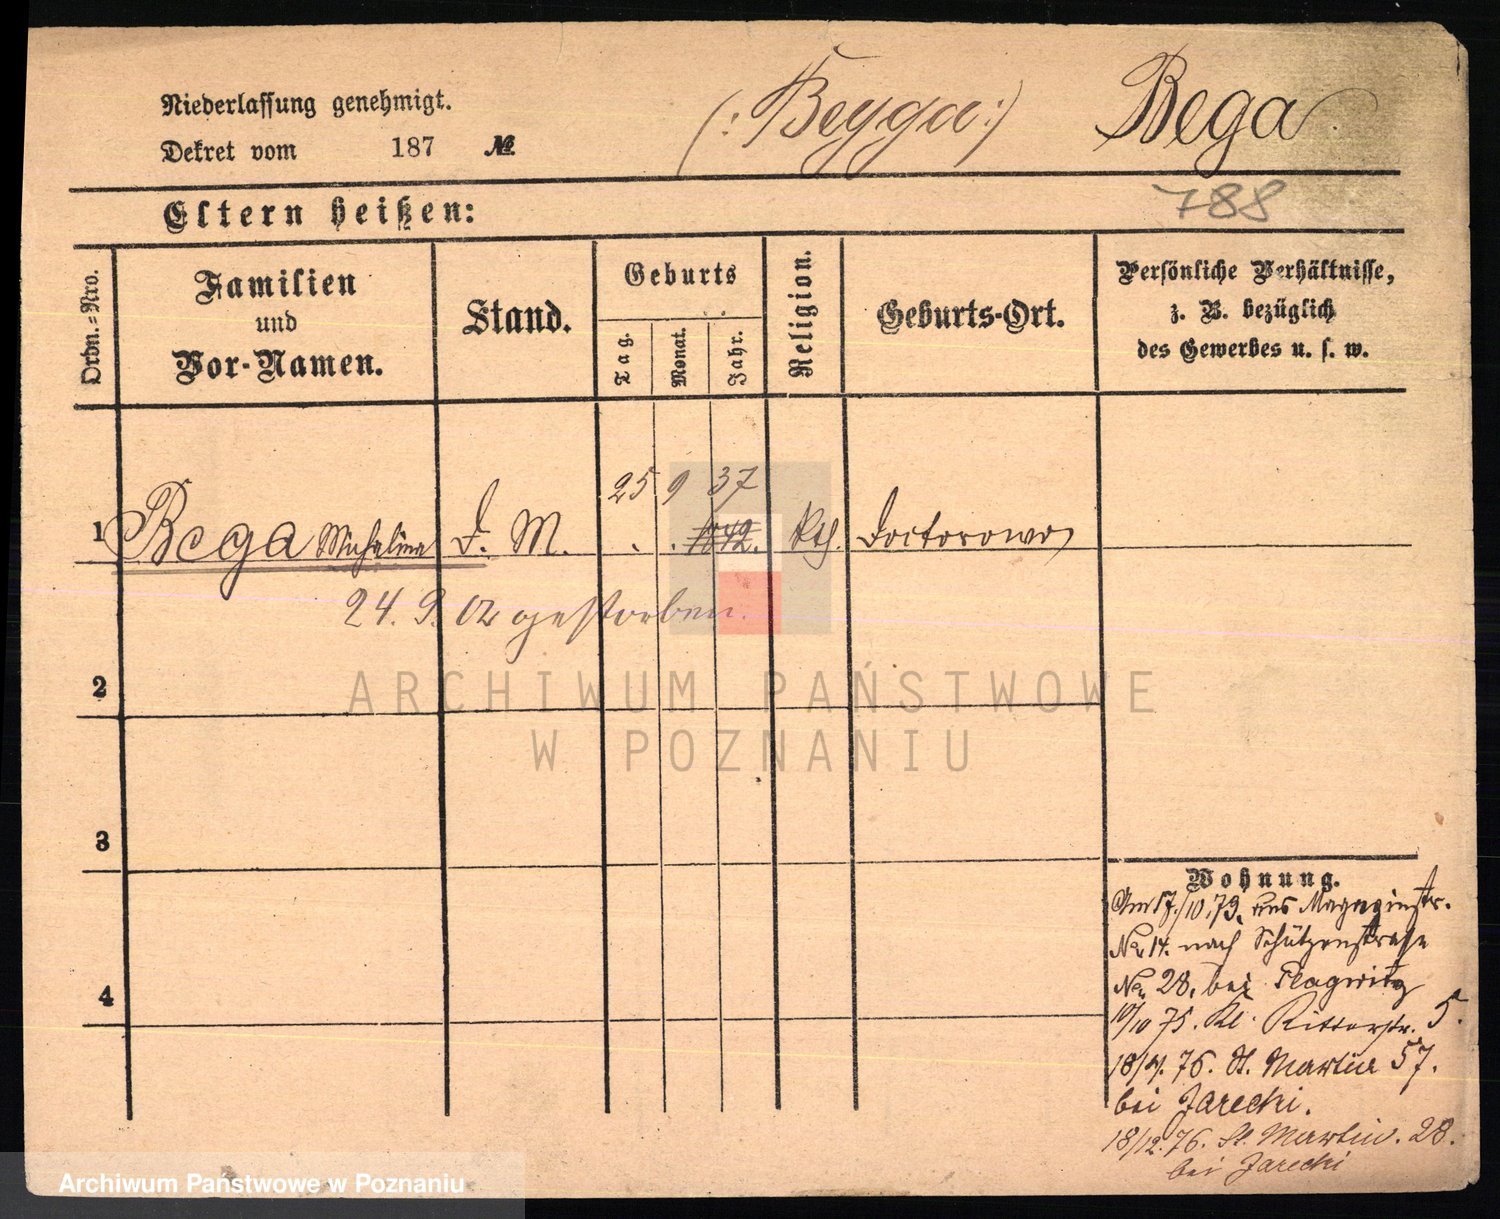 Niederlassung genehmigt.
Dekret vom 187 №
(: Beyga :) Bega
788
Eltern heißen:
Ordn.-Nro.
Familien
und
Vor-Namen.
Stand.
Geburts
Tag.
Monat.
Jahr.
Religion.
Geburts-Ort.
Persönliche Verhältnisse,
z. B. bezüglich
des Gewerbes u. s. w.
25 9 37
1 Bega Michalina D. M. . . 1842. kth. Doctorowo
24. 9. 02 gestorben.
2
3
4
Wohnung.
Am 17./10.73. aus Magazinstr.
No. 14. nach Schützenstrasse
No. 28, bei Flagwitz
10/10 75. Kl. Ritterstr. 5.
76. St. Martin 57.
bei Jarecki.
18/12.76. St. Martin. 28.
bei Jarecki
ARCHIWUM PAŃSTWOWE
W POZNANIU
Archiwum Państwowe w Poznaniu